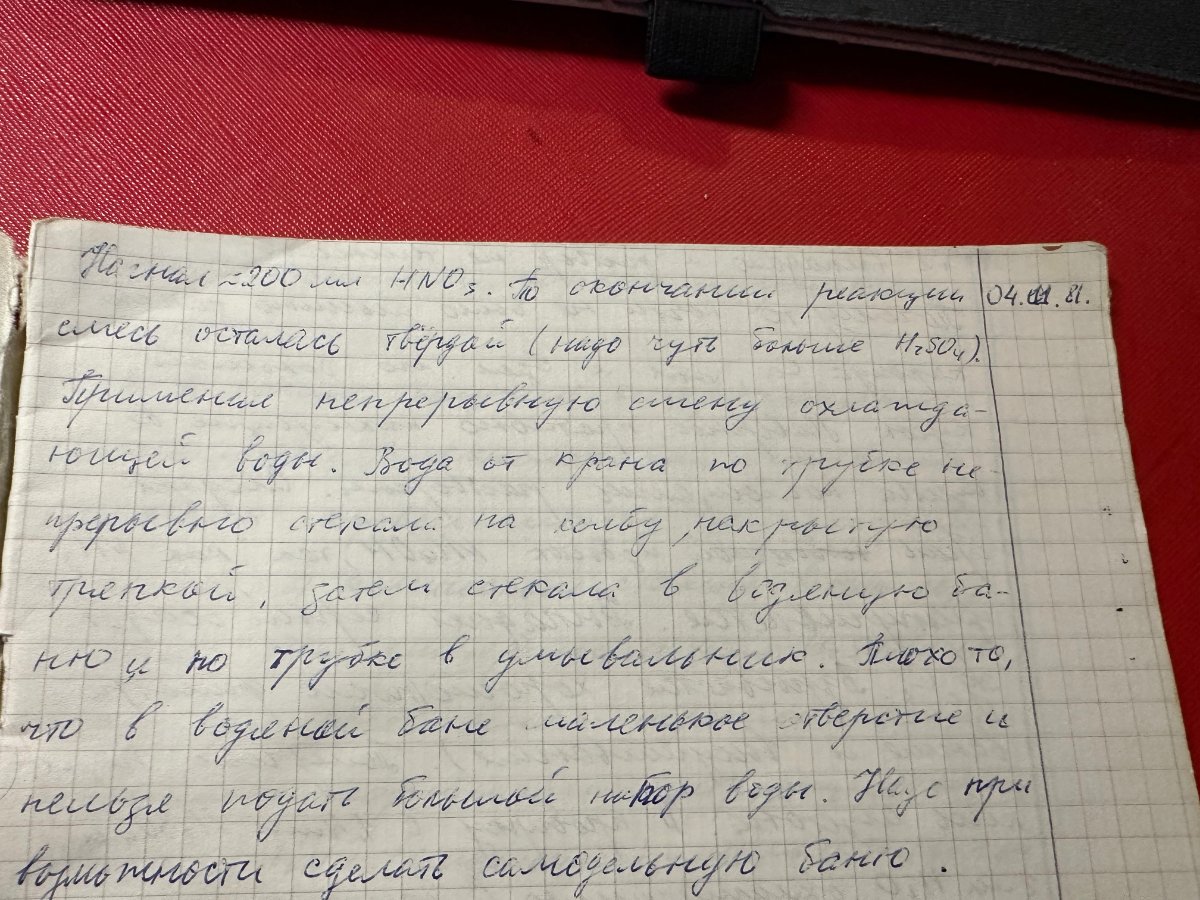 Нагнал ≈200 мл HNO₃. По окончании реакции 04.11.81.
смесь осталась твёрдой (надо чуть больше H₂SO₄).
Применил непрерывную смену охлажда-
ющей воды. Вода от крана по трубке не-
прерывно стекала на колбу, накрытую
тряпкой, затем стекала в водяную ба-
ню и по трубке в умывальник. Плохо то,
что в водяной бане маленькое отверстие и
нельзя подать большой напор воды. Надо при
возможности сделать самодельную баню.